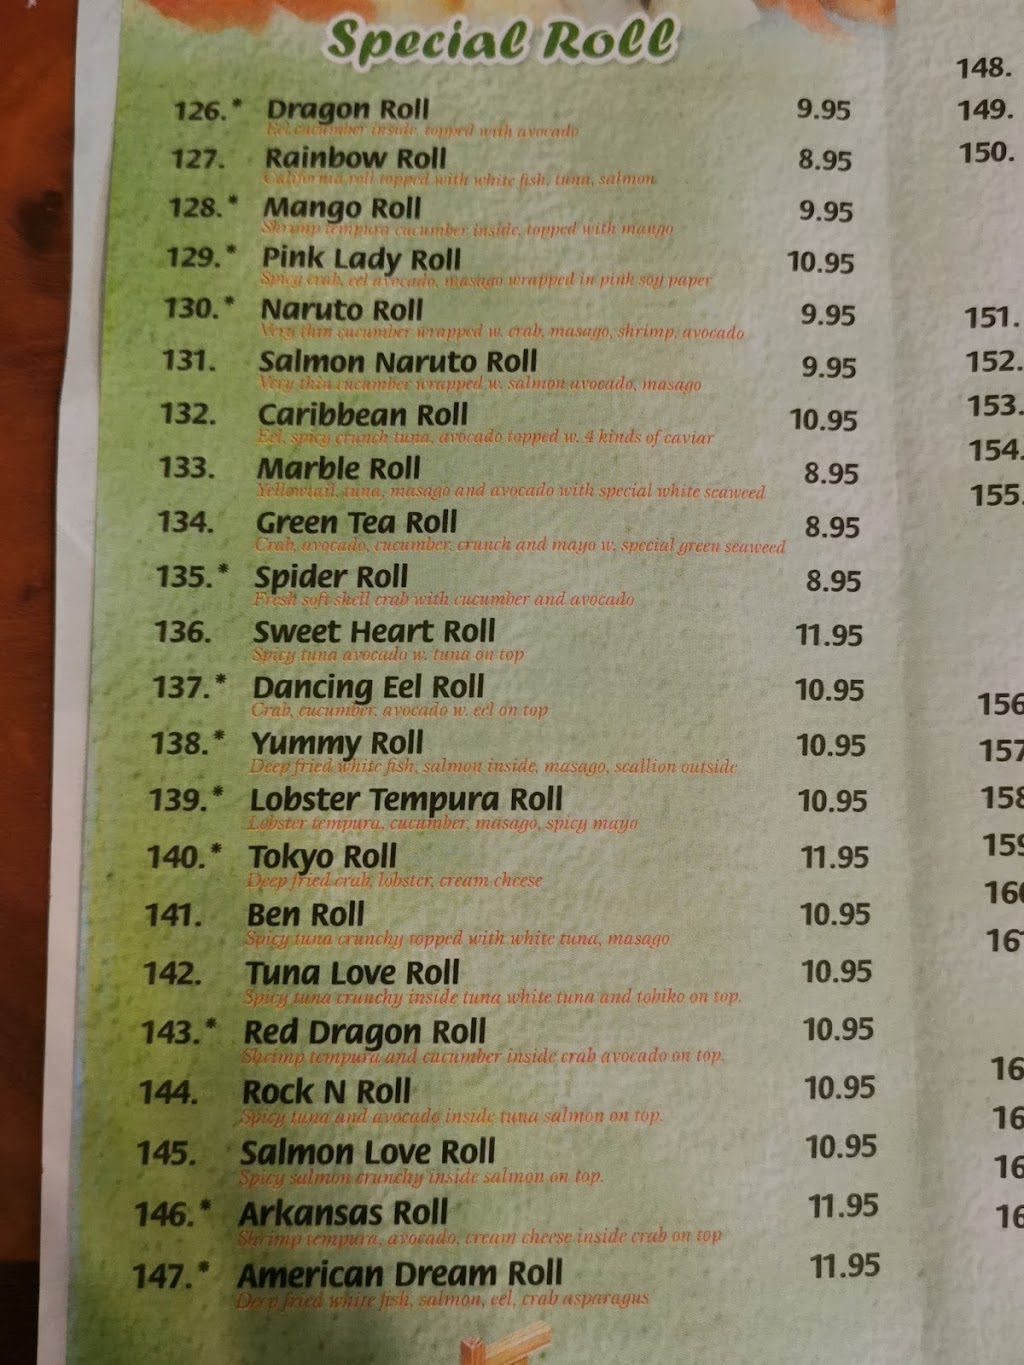 Special Roll
126.* Dragon Roll 9.95
Eel cucumber inside, topped with avocado
127. Rainbow Roll 8.95
California roll topped with white fish, tuna, salmon
128.* Mango Roll 9.95
Shrimp tempura cucumber inside, topped with mango
129.* Pink Lady Roll 10.95
Spicy crab, eel avocado, masago wrapped in pink soy paper
130.* Naruto Roll 9.95
Very thin cucumber wrapped w. crab, masago, shrimp, avocado
131. Salmon Naruto Roll 9.95
Very thin cucumber wrapped w. salmon avocado, masago
132. Caribbean Roll 10.95
Eel, spicy crunch tuna, avocado topped w. 4 kinds of caviar
133. Marble Roll 8.95
Yellowtail, tuna, masago and avocado with special white seaweed
134. Green Tea Roll 8.95
Crab, avocado, cucumber, crunch and mayo w. special green seaweed
135.* Spider Roll 8.95
Fresh soft shell crab with cucumber and avocado
136. Sweet Heart Roll 11.95
Spicy tuna avocado w. tuna on top
137.* Dancing Eel Roll 10.95
Crab, cucumber, avocado w. eel on top
138.* Yummy Roll 10.95
Deep fried white fish, salmon inside, masago, scallion outside
139.* Lobster Tempura Roll 10.95
Lobster tempura, cucumber, masago, spicy mayo
140.* Tokyo Roll 11.95
Deep fried crab, lobster, cream cheese
141. Ben Roll 10.95
Spicy tuna crunchy topped with white tuna, masago
142. Tuna Love Roll 10.95
Spicy tuna crunchy inside tuna white tuna and tobiko on top.
143.* Red Dragon Roll 10.95
Shrimp tempura and cucumber inside crab avocado on top.
144. Rock N Roll 10.95
Spicy tuna and avocado inside tuna salmon on top.
145. Salmon Love Roll 10.95
Spicy salmon crunchy inside salmon on top.
146.* Arkansas Roll 11.95
Shrimp tempura, avocado, cream cheese inside crab on top
147.* American Dream Roll 11.95
Deep fried white fish, salmon, eel, crab asparagus
148.
149.
150.
151.
152.
153.
154.
155.
156
157
158
159